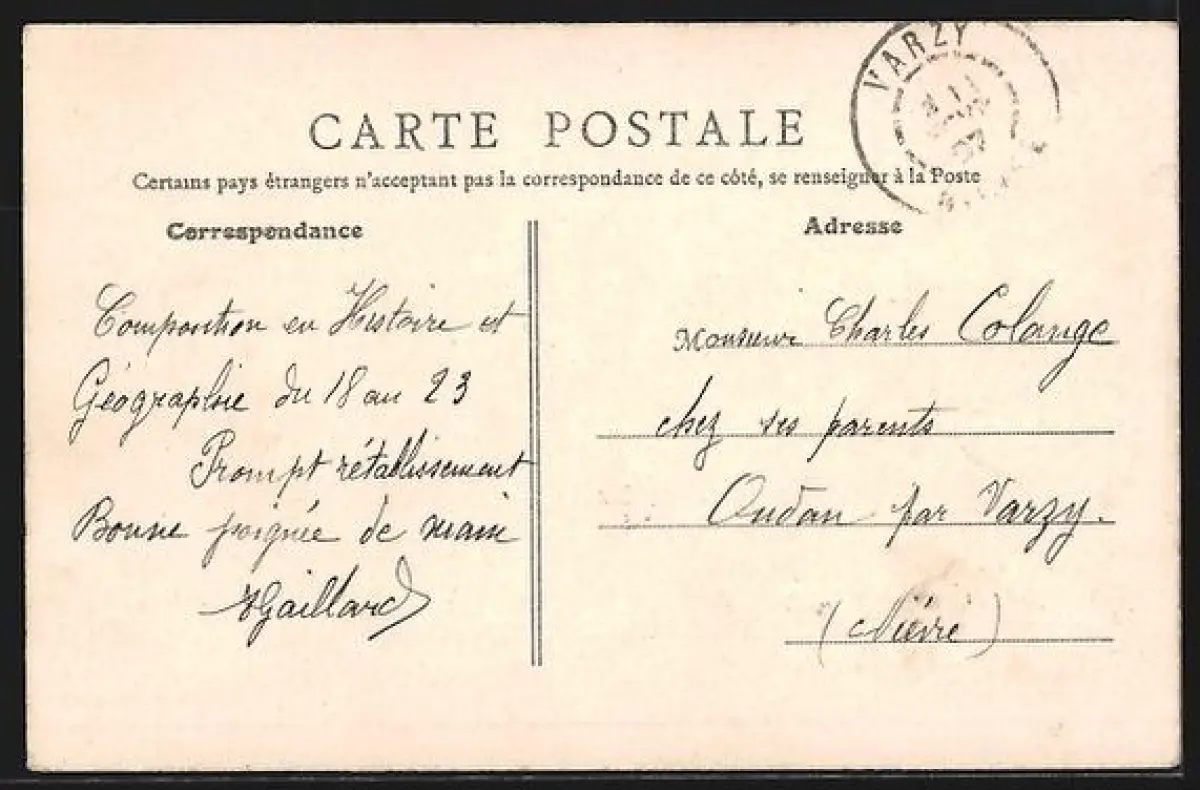 CARTE POSTALE
Certains pays étrangers n'acceptant pas la correspondance de ce côté, se renseigner à la Poste
Correspondance
Composition en Histoire et
Géographie du 18 au 23
Prompt rétablissement
Bonne poignée de main
Gaillard
Adresse
Monsieur Charles Colange
chez ses parents
Oudan par Varzy.
(Nièvre)
VARZY
07